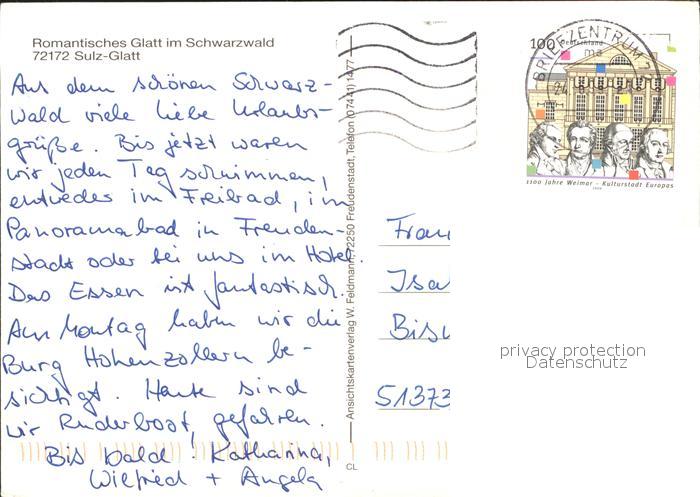 Romantisches Glatt im Schwarzwald
72172 Sulz-Glatt
Aus dem schönen Schwarz-
wald viele liebe Urlaubs-
grüße. Bis jetzt waren
wir jeden Tag schwimmen,
entweder im Freibad, im
Panoramabad in Freuden-
stadt oder bei uns im Hotel.
Das Essen ist fantastisch.
Am Montag haben wir die
Burg Hohenzollern be-
sichtigt. Heute sind
wir Ruderboot gefahren.
Bis bald! Katharina,
Wilfried + Angela
Ansichtskartenverlag W. Feldmann, 72250 Freudenstadt, Telefon (07441) 1477
CL
BRIEFZENTRUM
24
100
Deutschland
1100 Jahre Weimar - Kulturstadt Europas
1999
Frau
Isa
Bis
51373
privacy protection
Datenschutz